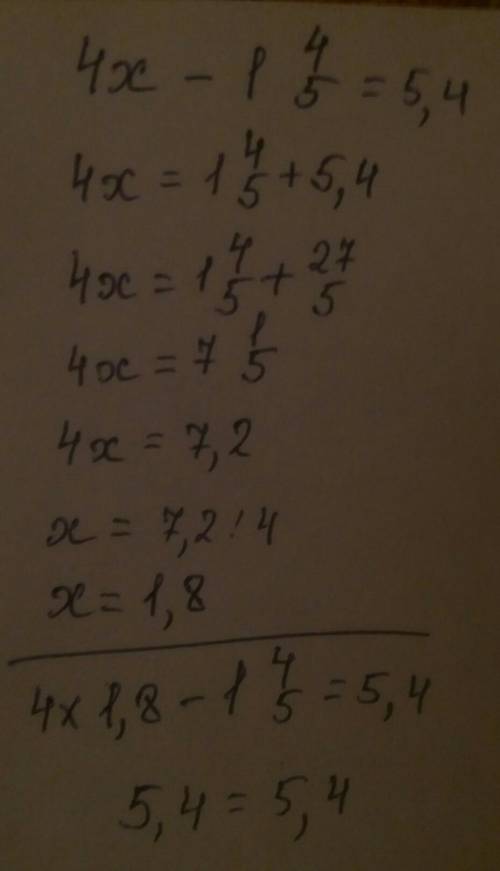 4x - 1 4/5 = 5,4
4x = 1 4/5 + 5,4
4x = 1 4/5 + 27/5
4x = 7 1/5
4x = 7,2
x = 7,2 : 4
x = 1,8
4 x 1,8 - 1 4/5 = 5,4
5,4 = 5,4